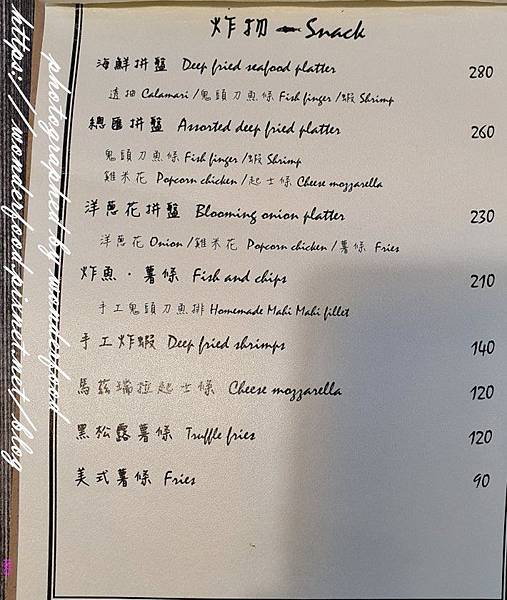 炸物 - Snack
海鮮拼盤 Deep fried seafood platter 280
透抽 Calamari / 鬼頭刀魚條 Fish finger / 蝦 Shrimp
總匯拼盤 Assorted deep fried platter 260
鬼頭刀魚條 Fish finger / 蝦 Shrimp
雞米花 Popcorn chicken / 起士條 Cheese mozzarella
洋蔥花拼盤 Blooming onion platter 230
洋蔥花 Onion / 雞米花 Popcorn chicken / 薯條 Fries
炸魚‧薯條 Fish and chips 210
手工鬼頭刀魚排 Homemade Mahi Mahi fillet
手工炸蝦 Deep fried shrimps 140
馬茲瑞拉起士條 Cheese mozzarella 120
黑松露薯條 Truffle fries 120
美式薯條 Fries 90
photographed by wonderfood
https://wonderfood.pixnet.net/blog